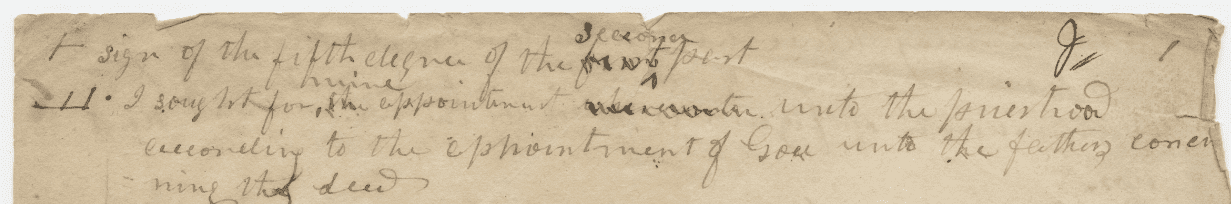 sign of the fifth degree of the first second part J 1
11. I sought for the mine appointment unto the priesthood
according to the appointment of God unto the fathers concer
ning the seed